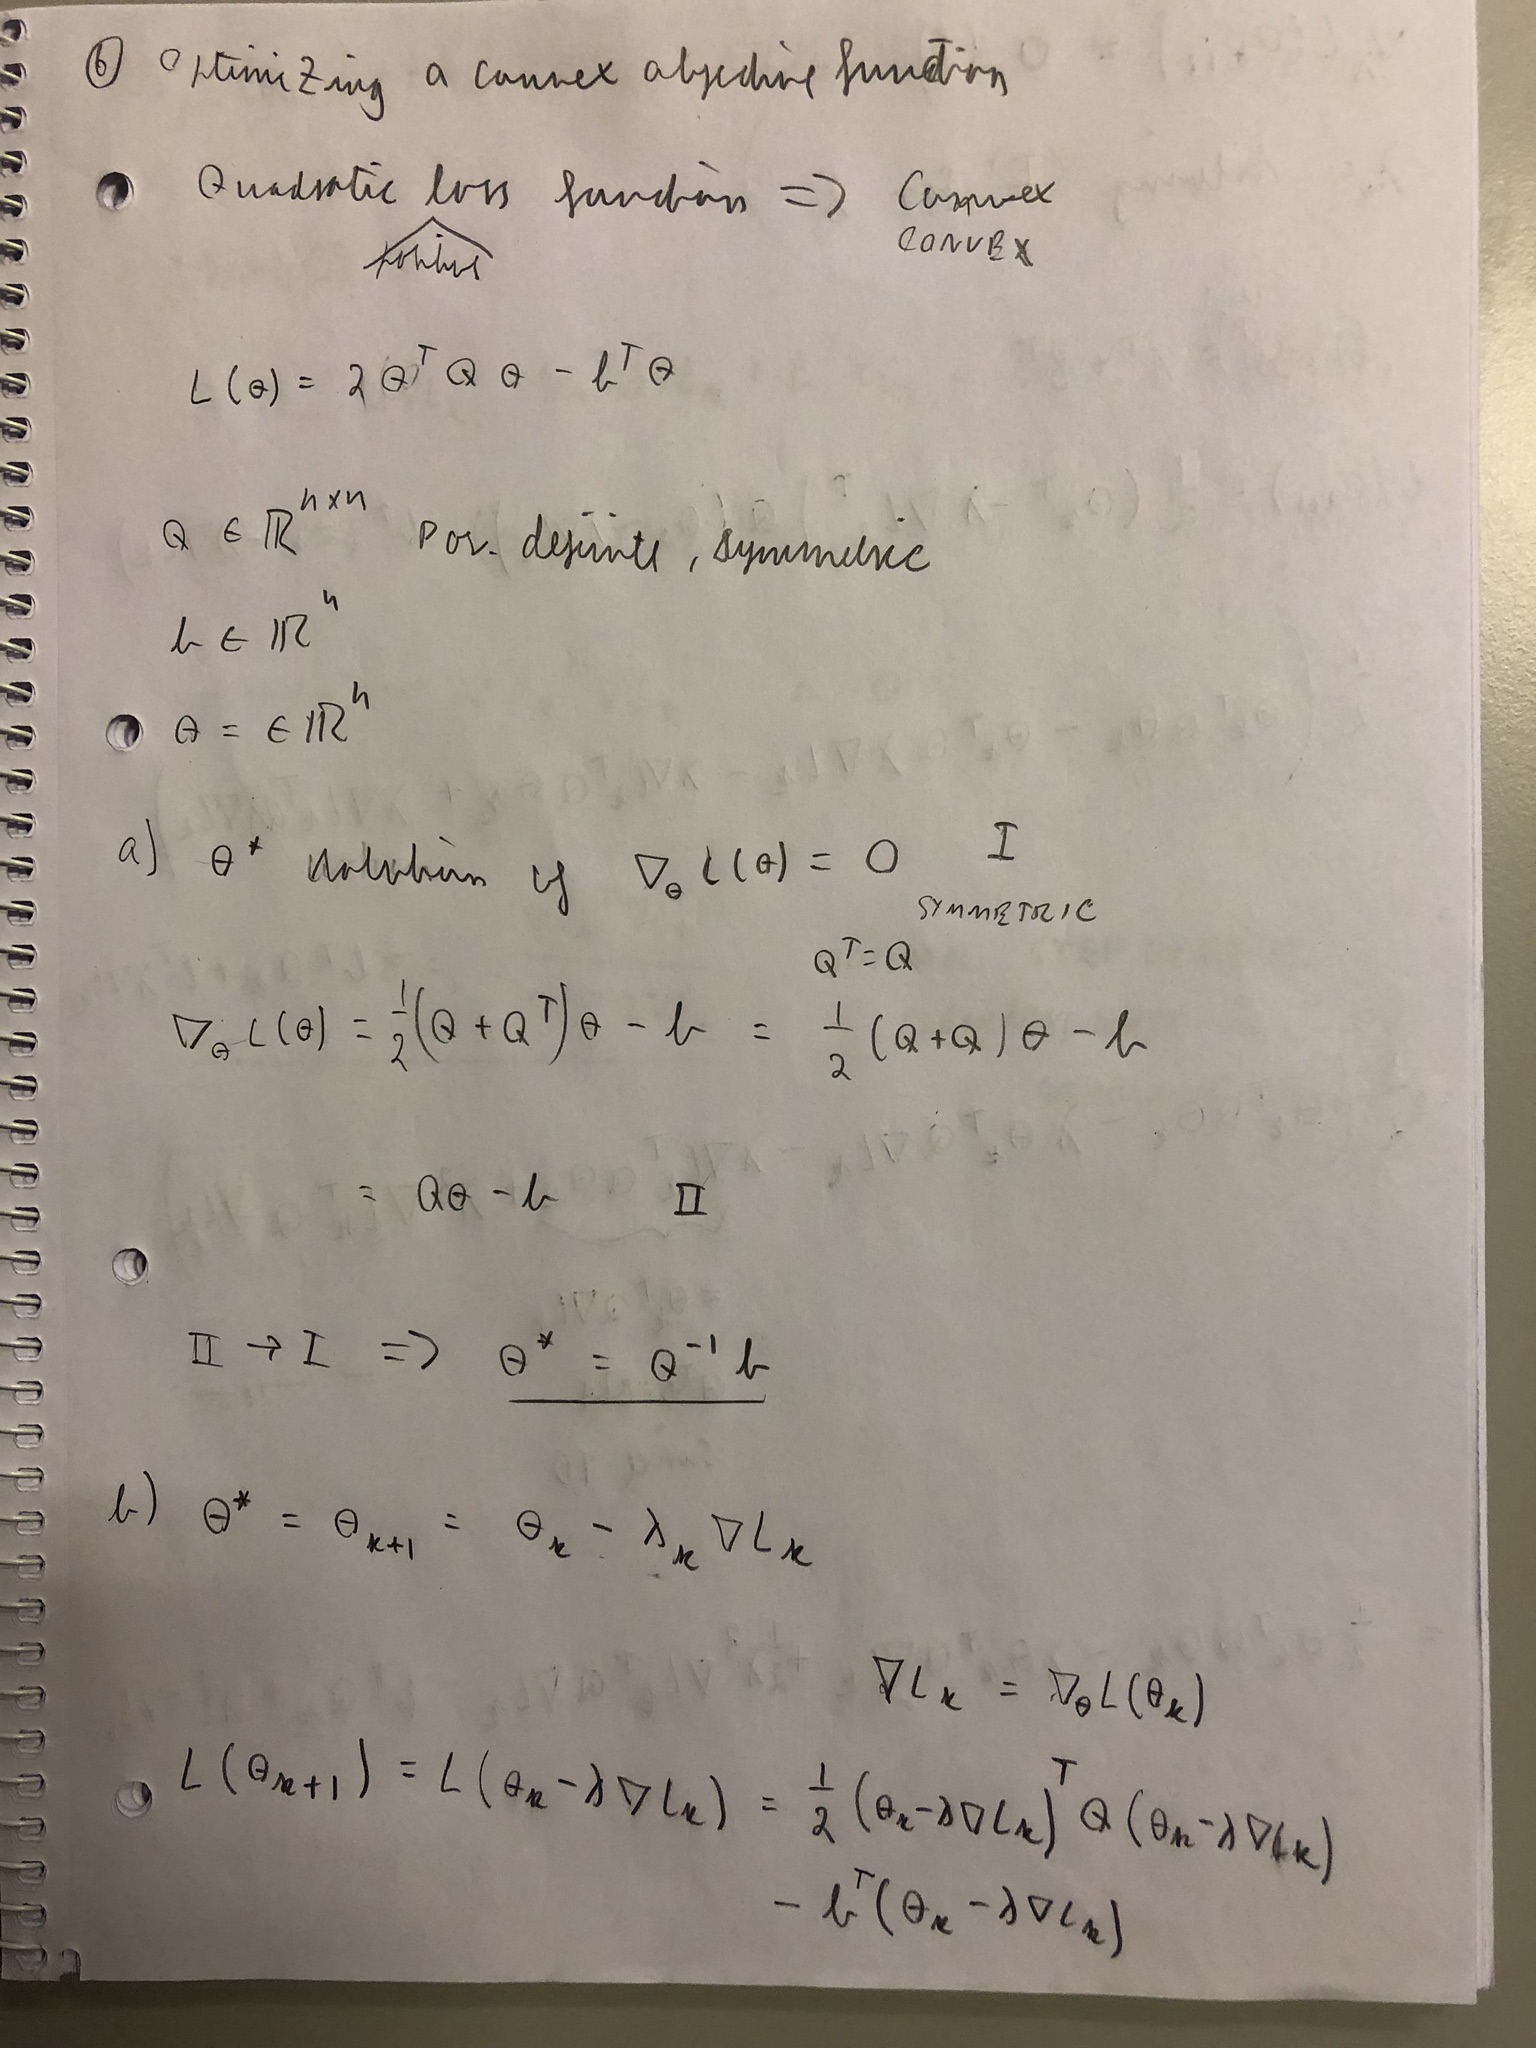 ⑥ Optimizing a convex objective function
Quadratic loss function => Convex
positive
CONVEX
L(θ) = 2 θᵀ Q θ - bᵀ θ
Q ∈ ℝⁿˣⁿ Pos. definite, symmetric
b ∈ ℝⁿ
θ = ∈ ℝⁿ
a) θ* solution if ∇_θ L(θ) = 0 I
SYMMETRIC
Qᵀ = Q
∇_θ L(θ) = 1/2 (Q + Qᵀ) θ - b = 1/2 (Q + Q) θ - b
= Qθ - b II
II → I => θ* = Q⁻¹ b
b) θ* = θ_{k+1} = θ_k - λ_k ∇L_k
∇L_k = ∇_θ L(θ_k)
L(θ_{k+1}) = L(θ_k - λ∇L_k) = 1/2 (θ_k - λ∇L_k)ᵀ Q (θ_k - λ∇L_k)
- bᵀ (θ_k - λ∇L_k)